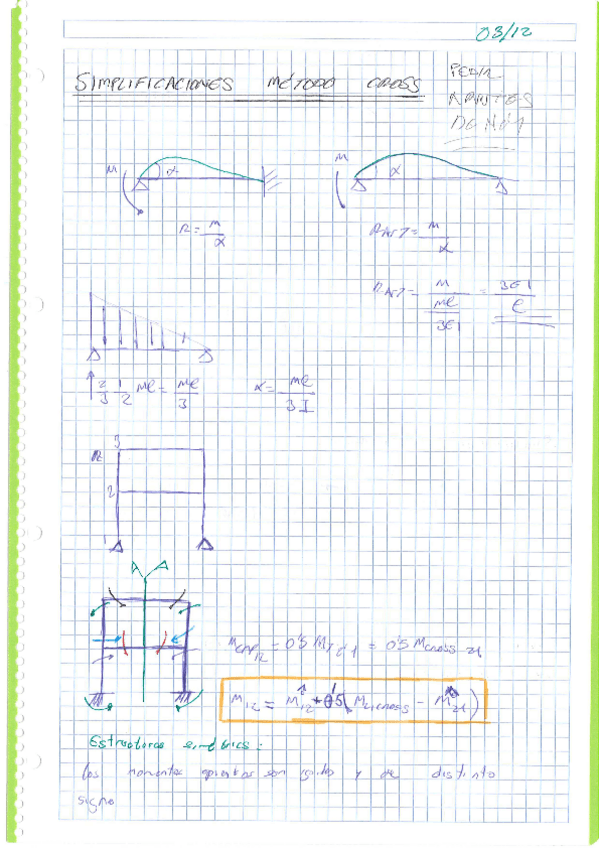 03/12
SIMPLIFICACIONES MÉTODO CROSS
PEDIR
APUNTES
M α
M α
R = M / α
R ART = M / α
R ART = M / (Ml / 3EI) = 3EI / l
2/3 1/2 Ml = Ml / 3
α = Ml / 3I
3
2
1
= 0'5 M = 0'5 Mcross 21
M12 = M12 + 0'5 (M21cross - M21)
Estructuras simétricas:
los momentos son iguales y de distinto
signo